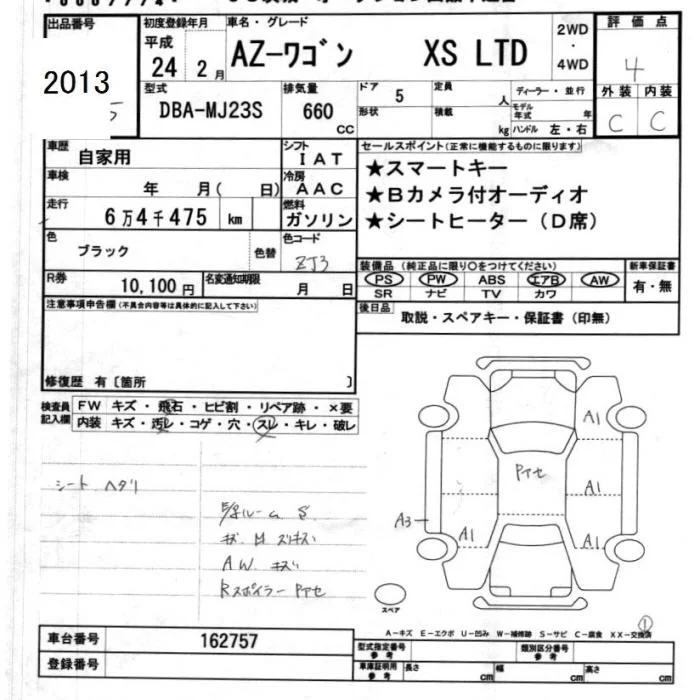 出品番号 初度登録年月 車名・グレード 2WD ・ 4WD 評価点
2013 平成 24年 2月 AZ-ワゴン XS LTD 4
型式 DBA-MJ23S 排気量 660 CC ドア 5 定員 人 ディーラー・並行 外装 内装
形状 積載 kg モデル年式 年 ハンドル 左・右 C C
車歴 自家用 シフト IAT セールスポイント(正常に機能するものに限ります)
車検 年 月( 日) 冷房 AAC ★スマートキー
走行 6万4千475 km 燃料 ガソリン ★Bカメラ付オーディオ
★シートヒーター(D席)
色 ブラック 色替 色コード ZJ3
装備品(純正品に限り○をつけてください) 新車保証書
R券 10,100円 名変通知期限 月 日 PS PW ABS エアB AW 有・無
SR ナビ TV カワ
注意事項申告欄(不具合内容等は具体的に記入して下さい) 後日品 取説・スペアキー・保証書(印無)
修復歴 有〔箇所 〕
検査員記入欄 FW キズ・飛石・ヒビ割・リペア跡・×要
内装 キズ・汚レ・コゲ・穴・スレ・キレ・破レ
シート ヘタリ
ルーム S
キズ M スリキズ
AW キズ
Rスポイラー Pアセ
Pアセ
A1
A1
A3
A1 A1
スペア
A-キズ E-エクボ U-凹み W-補修跡 S-サビ C-腐食 XX-交換済
①
車台番号 162757 型式指定番号 参考 類別区分番号 参考
登録番号 車庫証明用 参考 長さ cm 幅 cm 高さ cm